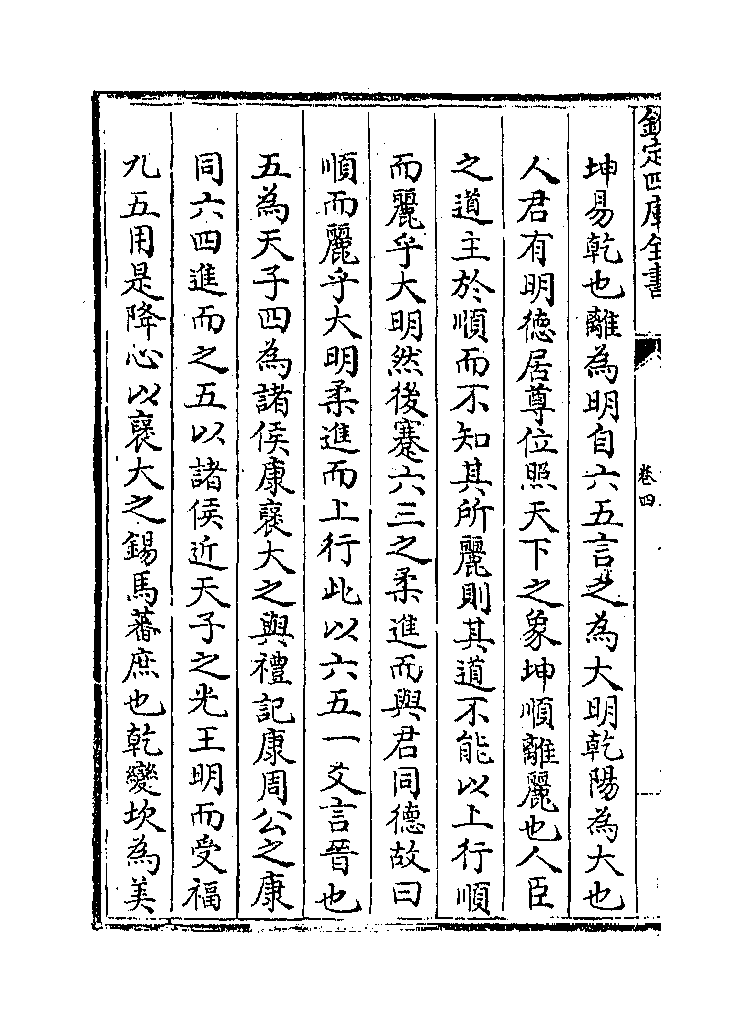 欽定四庫全書
卷四
坤易乾也離為明自六五言之為大明乾陽為大也
人君有明德居尊位照天下之象坤順離麗也人臣
之道主於順而不知其所麗則其道不能以上行順
而麗乎大明然後蹇六三之柔進而與君同德故曰
順而麗乎大明柔進而上行此以六五一爻言晉也
五為天子四為諸侯康襃大之與禮記康周公之康
同六四進而之五以諸侯近天子之光王明而受福
九五用是降心以襃大之錫馬蕃庶也乾變坎為美